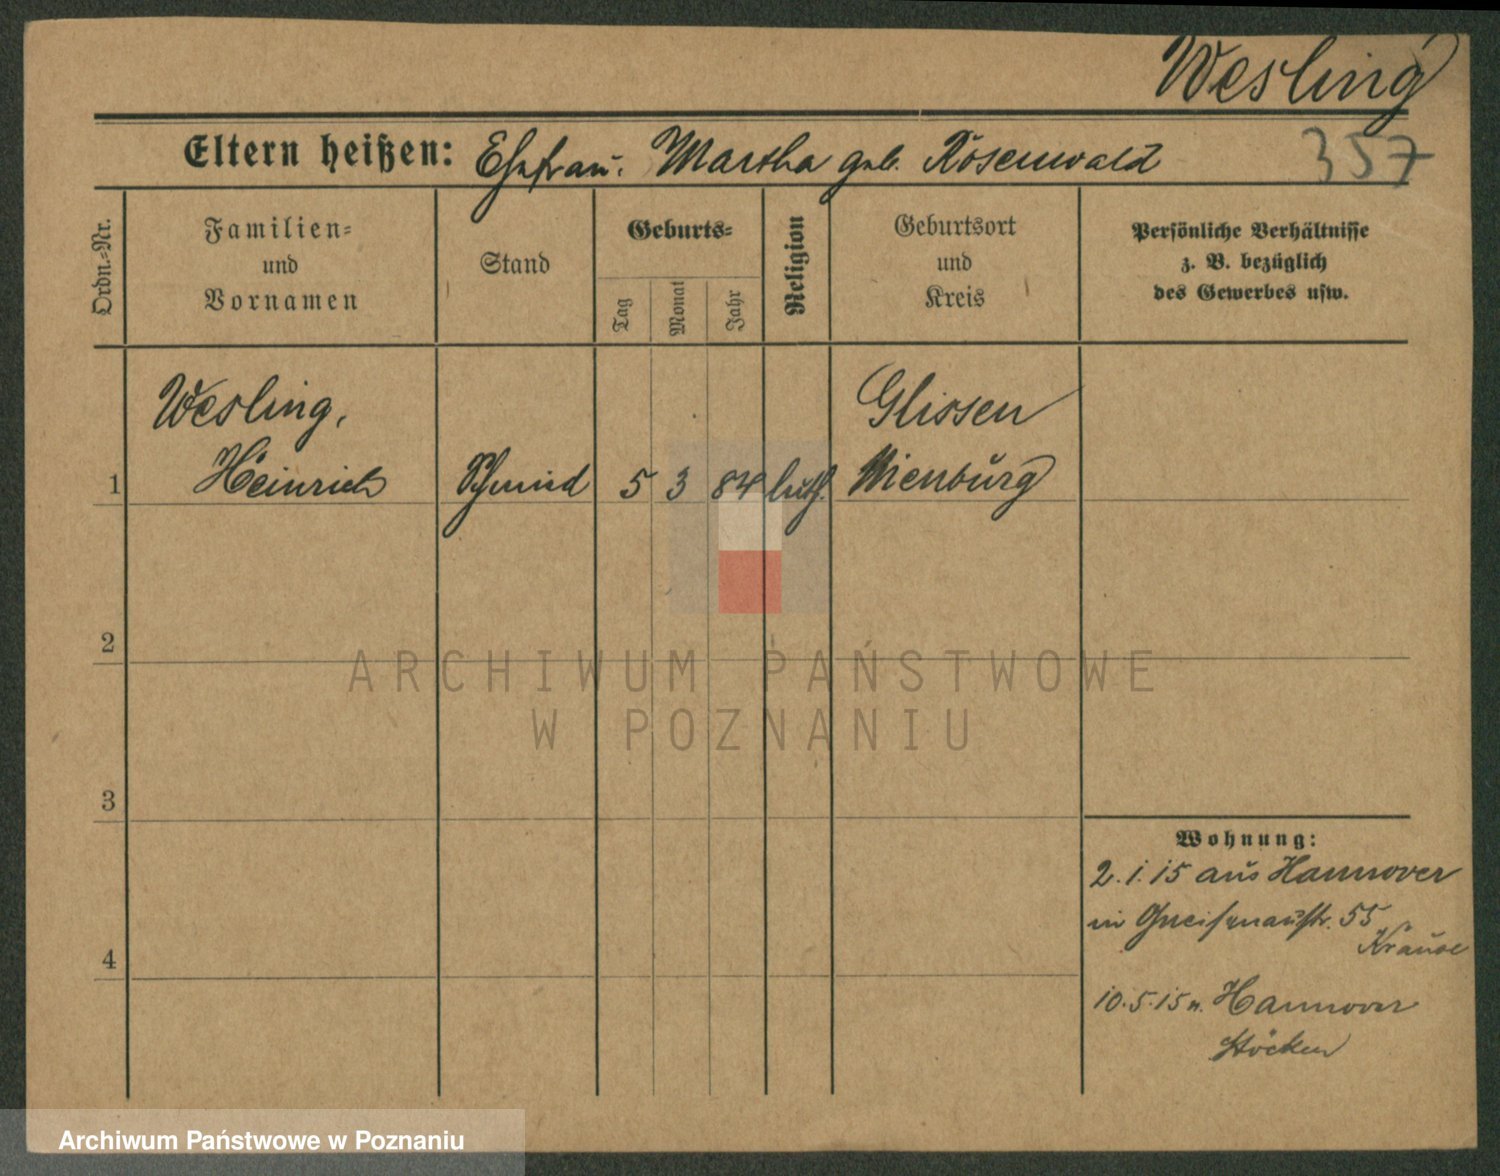 Wesling
357
Eltern heißen: Ehefrau. Martha geb. Rosenwald
Ordn.-Nr.
Familien=
und
Vornamen
Stand
Geburts=
Tag
Monat
Jahr
Religion
Geburtsort
und
Kreis
Persönliche Verhältnisse
z. B. bezüglich
des Gewerbes usw.
Wesling,
Glissen
1 Heinrich Schmied 5 3 84 luth. Nienburg
ARCHIWUM PAŃSTWOWE
W POZNANIU
2
3
4
Wohnung:
2.1.15 aus Hannover
in Gneisenaustr. 55
Krause
10.5.15 n. Hannover
Stöcken
Archiwum Państwowe w Poznaniu